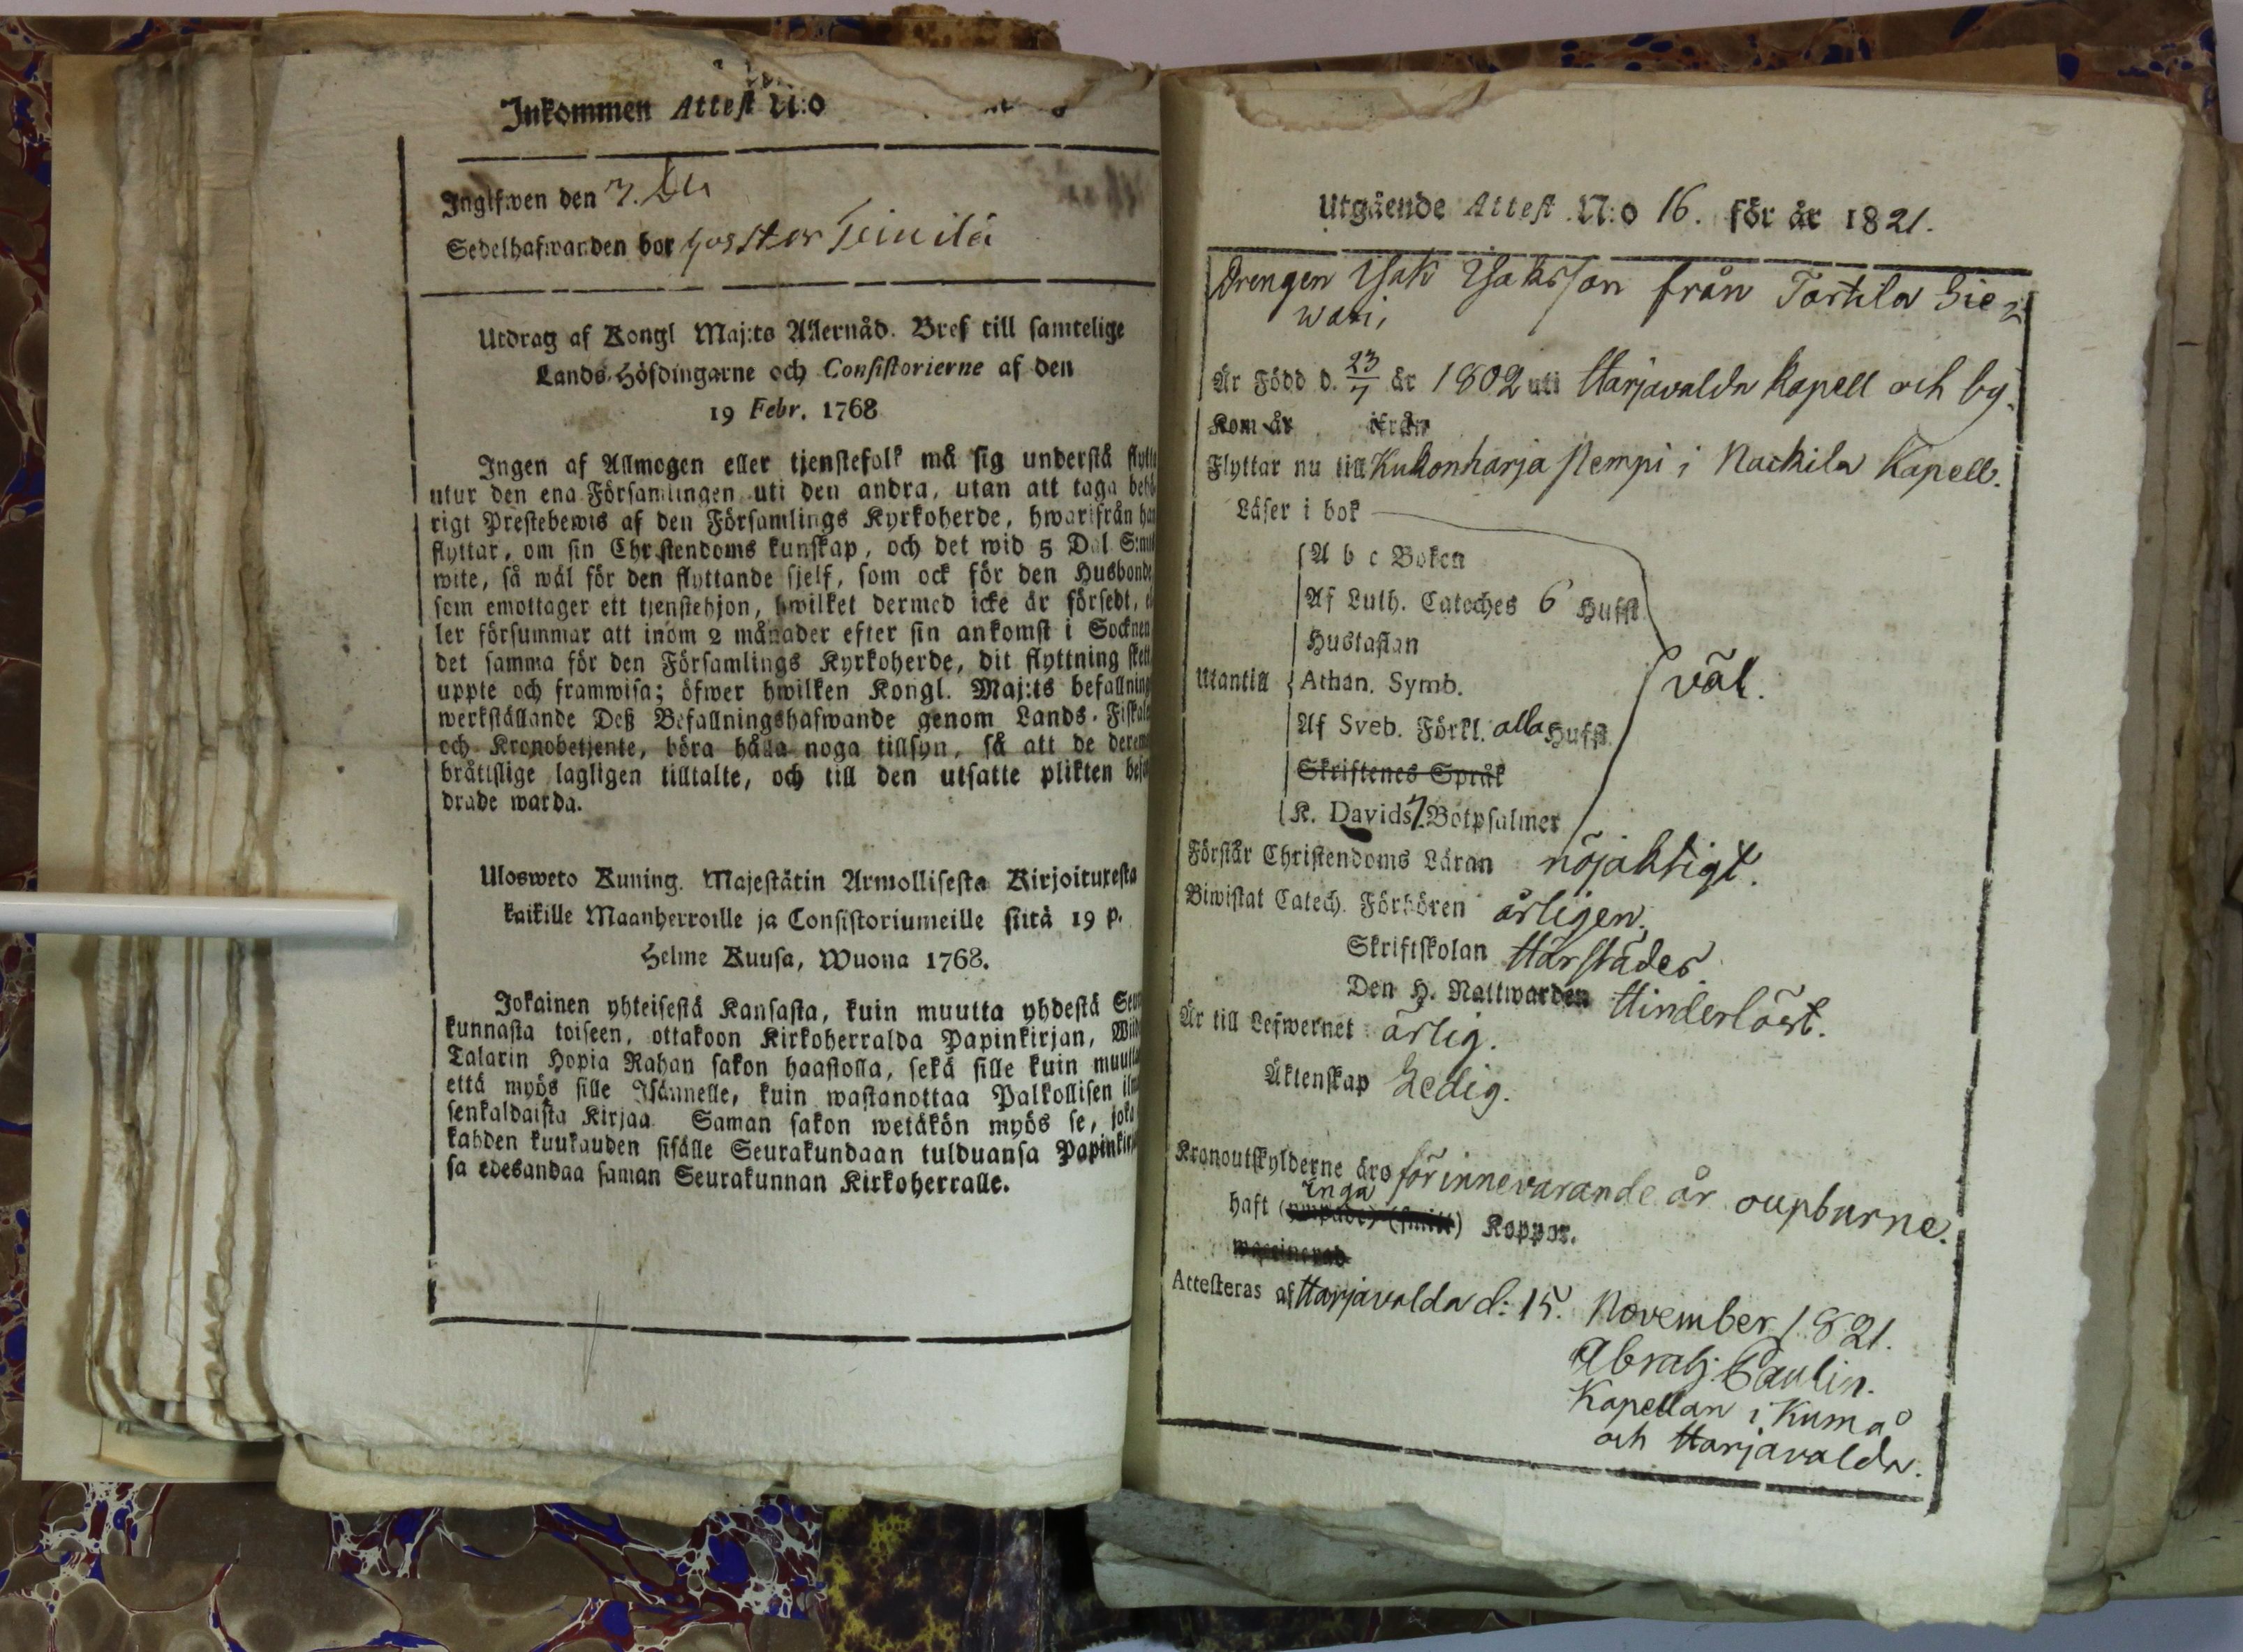 Inkommen Attest N:o
Ingifwen den 7.
Sedelhafwanden bor hos
Utdrag af Kongl Maj:ts Allernåd. Bref till samtelige
Lands-Höfdingarne och Consistorierne af den
19 Febr. 1768
Ingen af Allmogen eller tjenstefolk må sig understå flytta
utur den ena Församlingen uti den andra, utan att taga behö-
rigt Prestebewis af den Församlings Kyrkoherde, hwarifrån han
flyttar, om sin Christendoms kunskap, och det wid 5 Dal S:mt
wite, så wäl för den flyttande sjelf, som ock för den Husbonde
som emottager ett tjenstehjon, hwilket dermed icke är försedt, el
ler försummar att inom 2 månader efter sin ankomst i Socknen
det samma för den Församlings Kyrkoherde, dit flyttning skett
uppte och framwisa; öfwer hwilken Kongl. Maj:ts befallning
werkställande Deß Befallningshafwande genom Lands-Fiskale
och Kronobetjente, böra hålla noga tillsyn, så att de derem
bråttslige lagligen tilltalte, och till den utsatte plikten befor
drade warda.
Ulosweto Kuning. Majestätin Armollisesta Kirjoituxesta
kaikille Maanherroille ja Consistoriumeille siitä 19 p.
Helme Kuusa, Wuona 1768.
Jokainen yhteisestä Kansasta, kuin muutta yhdestä Seura
kunnasta toiseen, ottakoon Kirkoherralda Papinkirjan, Wiid
Talarin Hopia Rahan sakon haastolla, sekä sille kuin muutta
että myös sille Isännelle, kuin wastanottaa Palkollisen ilm
senkaldaista Kirjaa. Saman sakon wetäkön myös se, joka
kahden kuukauden sisälle Seurakundaan tulduansa Papinkirj
sa edesandaa saman Seurakunnan Kirkoherralle.
Utgående Attest N:o 16. för år 1821.
Drengen Isak Isaksson från Torttila Sie=
wari,
Är Född d. 23/7 år 1802 uti Harjavalda kapell och by.
Kom år ifrån
Flyttar nu till Kukonharja Nempi i Nackila Kapell.
Läser i bok
A b c Boken
Af Luth. Cateches 6 Hufst.
Hustaflan
Utantill Athan. Symb. väl.
Af Sveb. Förkl. alla Hufst.
Skriftenes Språk
K. Davids 7 Botpsalmer
Förstår Christendoms Läran nöjaktigt.
Biwistat Catech. Förhören årligen.
Skriftskolan Härstädes
Den H. Nattwarden Hinderlöst.
Är till Lefwernet ärlig.
Äktenskap Ledig.
Kronoutskylderne äro för innevarande år oupburne.
inga
haft (ympade) (smitt) Koppor.
waccinerad
Attesteras af Harjavalda d: 15. November 1821.
Abrah: Paulin.
Kapellan i Kumå
och Harjavalda.